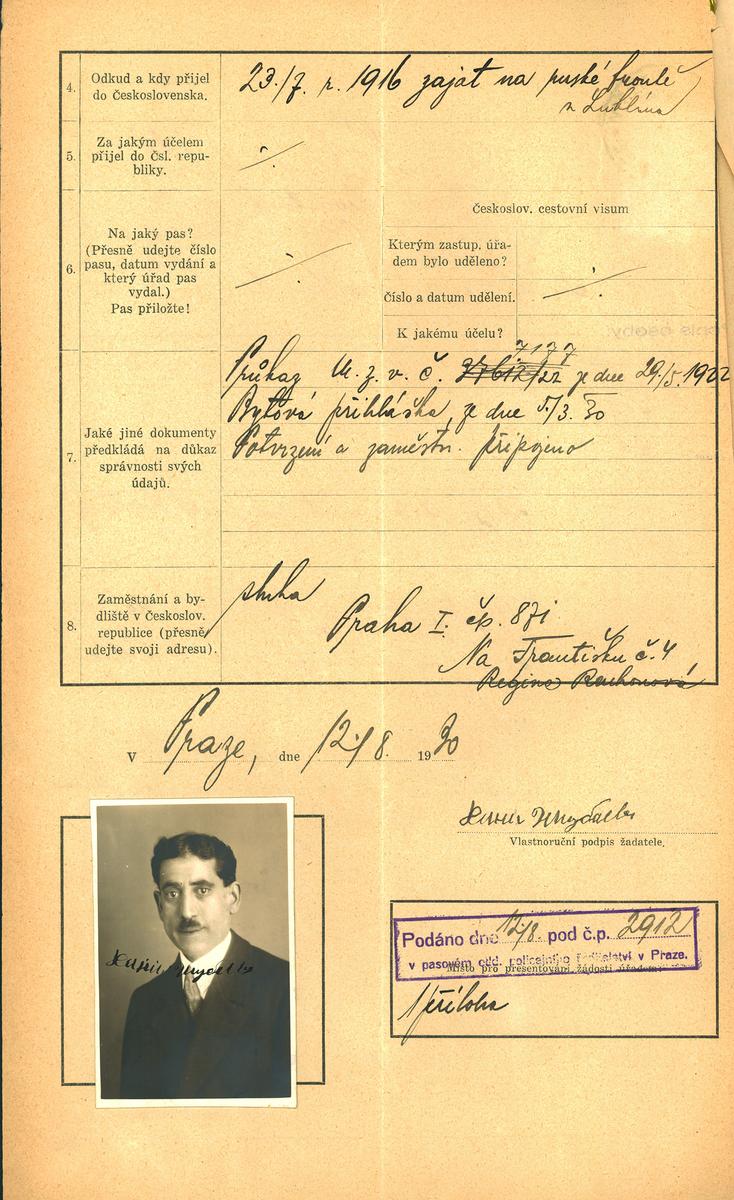 4. Odkud a kdy přijel
do Československa.
23./7. r. 1916 zajat na ruské frontě
u Lublína
5. Za jakým účelem
přijel do čsl. repu-
bliky.
6. Na jaký pas?
(Přesně udejte číslo
pasu, datum vydání a
který úřad pas
vydal.)
Pas přiložte!
Českoslov. cestovní visum
Kterým zastup. úřa-
dem bylo uděleno?
Číslo a datum udělení.
K jakému účelu?
7. Jaké jiné dokumenty
předkládá na důkaz
správnosti svých
údajů.
7177
Průkaz M. z. v. č. 37612/22 ze dne 29/5. 1922
Bytová přihláška, ze dne 5/3. 30
Potvrzení o zaměstn. připojeno
8. Zaměstnání a by-
dliště v Českoslov.
republice (přesně
udejte svoji adresu).
sluha
Praha I. čp. 871
Na Františku č. 4
Regina
V Praze, dne 12./8. 1930
Vlastnoruční podpis žadatele.
Podáno dne 12/8. pod č.p. 2912
v pasovém odd. policejního ředitelství v Praze.
Místo pro presentování žádosti úřadem.
1 příloha